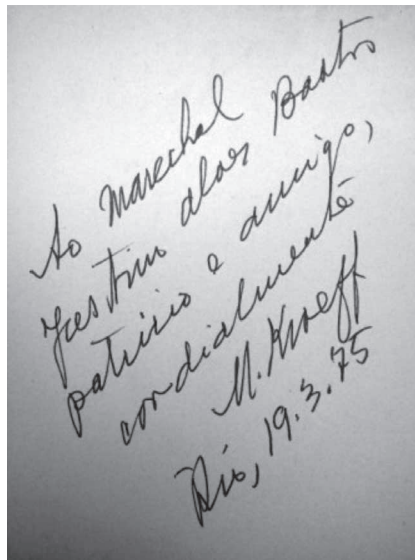 Ao Marechal
Justino Alves Bastos
patrício e amigo,
cordialmente
M. Kroeff
Rio, 19.3.75